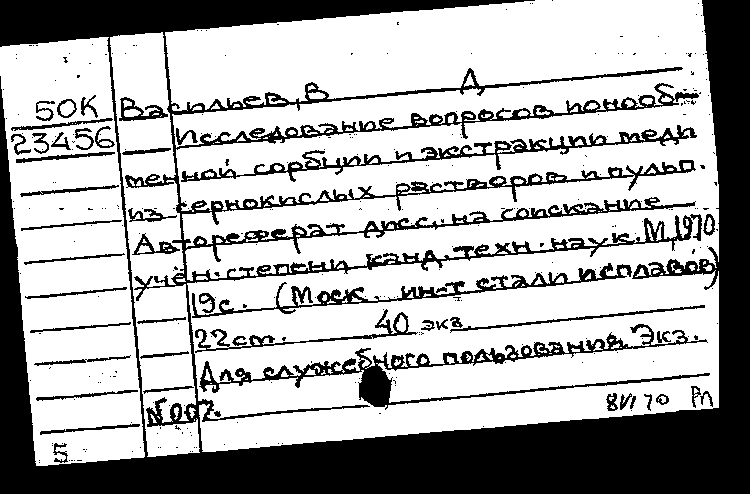 50К Васильев, В Д
23456 Исследование вопросов ионооб-
менной сорбции и экстракции меди
из сернокислых растворов и пульп.
Автореферат дисс. на соискание
учён. степени канд. техн. наук. М, 1970
19с. (Моск. ин-т стали и сплавов)
22cm. 40 экз.
Для служебного пользования. Экз.
№ 007.
8 VI 70 Рл
5